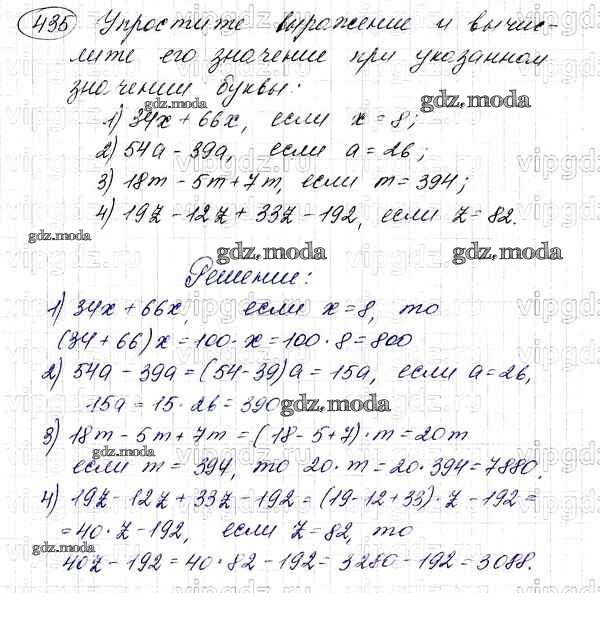 435 Упростите выражение и вычис-
лите его значение при указанном
значении буквы:
1) 34x + 66x, если x = 8;
2) 54a - 39a, если a = 26;
3) 18m - 5m + 7m, если m = 394;
4) 19z - 12z + 33z - 192, если z = 82.
Решение:
1) 34x + 66x, если x = 8, то
(34 + 66)x = 100 · x = 100 · 8 = 800
2) 54a - 39a = (54 - 39)a = 15a, если a = 26,
15a = 15 · 26 = 390
3) 18m - 5m + 7m = (18 - 5 + 7) · m = 20m
если m = 394, то 20 · m = 20 · 394 = 7880.
4) 19z - 12z + 33z - 192 = (19 - 12 + 33) · z - 192 =
= 40 · z - 192, если z = 82, то
40z - 192 = 40 · 82 - 192 = 3280 - 192 = 3088.
gdz.moda
gdz.moda
gdz.moda
gdz.moda
gdz.moda
gdz.moda
gdz.moda
vipgdz.ru